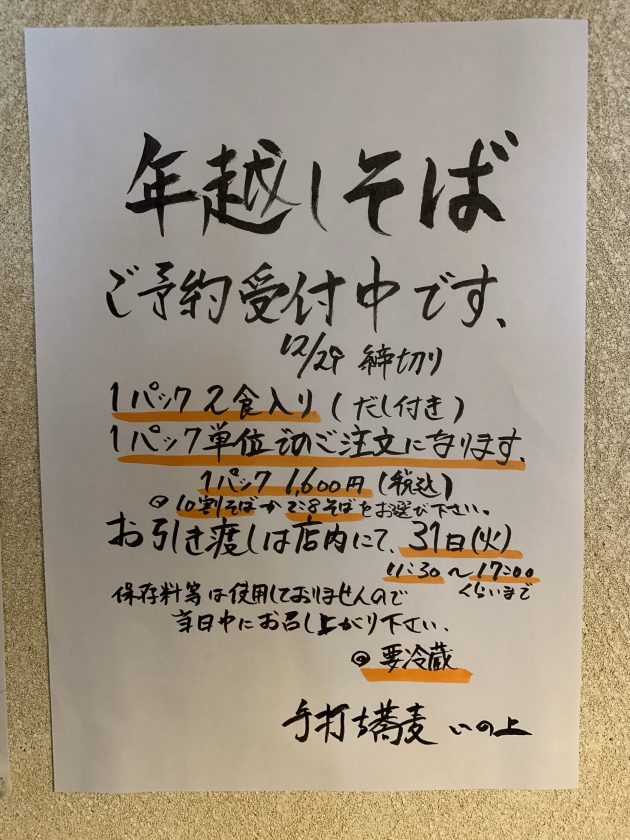 年越しそば
ご予約受付中です、
12/29 締切り
1パック2食入り(だし付き)
1パック単位でのご注文になります。
1パック 1,600円(税込)
◎10割そばか二:八そばをお選び下さい。
お引き渡しは店内にて、31日(火)
11:30〜17:00
くらいまで
保存料等は使用しておりませんので
当日中にお召し上がり下さい、
◎要冷蔵
手打ち蕎麦 いの上